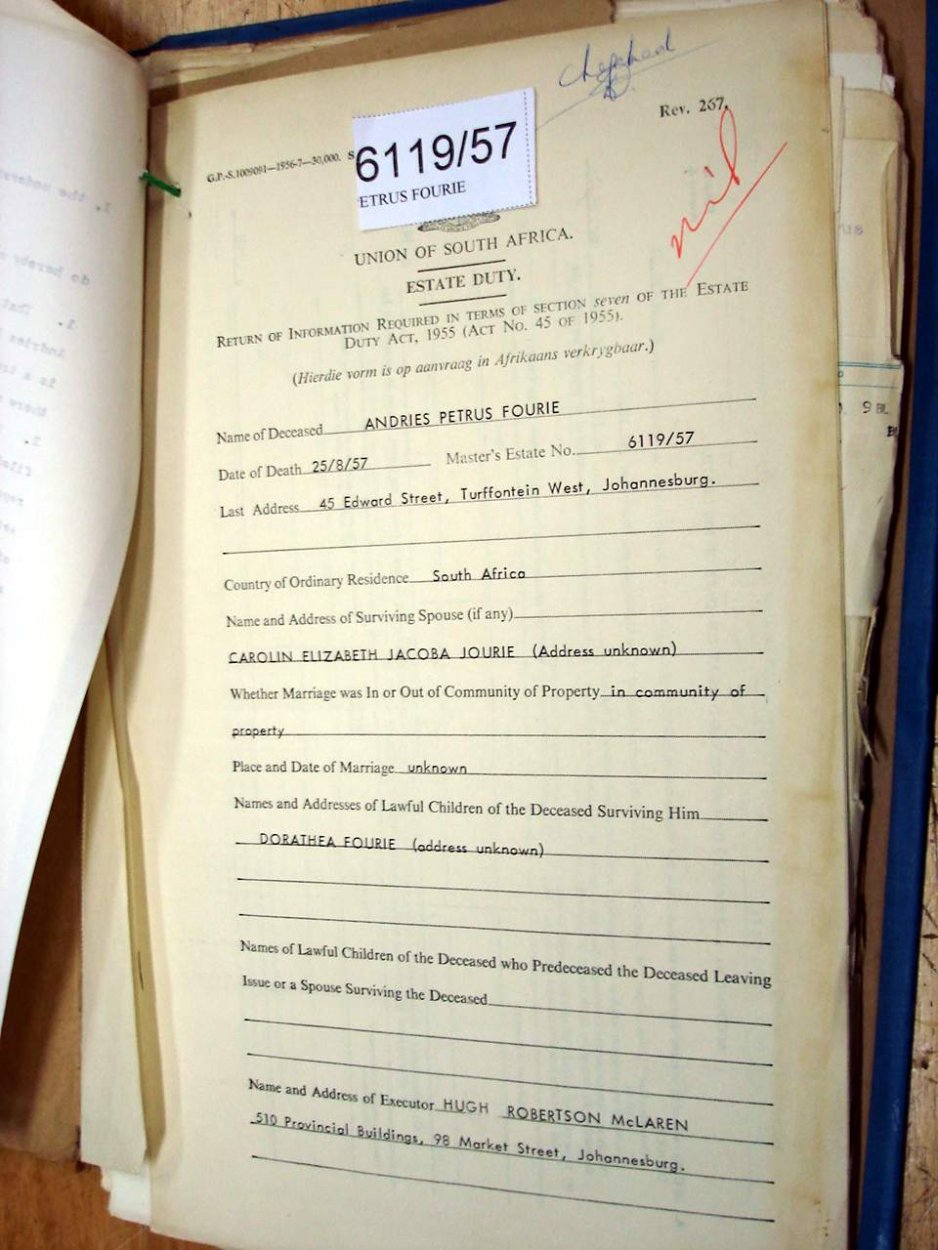 Rev. 267.
nil
G.P.-S.1009091—1956-7—30,000. S
6119/57
ETRUS FOURIE
UNION OF SOUTH AFRICA.
ESTATE DUTY.
RETURN OF INFORMATION REQUIRED IN TERMS OF SECTION seven OF THE ESTATE
DUTY ACT, 1955 (ACT NO. 45 OF 1955).
(Hierdie vorm is op aanvraag in Afrikaans verkrygbaar.)
Name of Deceased ANDRIES PETRUS FOURIE
Date of Death 25/8/57 Master's Estate No. 6119/57
Last Address 45 Edward Street, Turffontein West, Johannesburg.
Country of Ordinary Residence South Africa
Name and Address of Surviving Spouse (if any)
CAROLIN ELIZABETH JACOBA JOURIE (Address unknown)
Whether Marriage was In or Out of Community of Property in community of
property
Place and Date of Marriage unknown
Names and Addresses of Lawful Children of the Deceased Surviving Him
DORATHEA FOURIE (address unknown)
Names of Lawful Children of the Deceased who Predeceased the Deceased Leaving
Issue or a Spouse Surviving the Deceased
Name and Address of Executor HUGH ROBERTSON McLAREN
510 Provincial Buildings, 98 Market Street, Johannesburg.